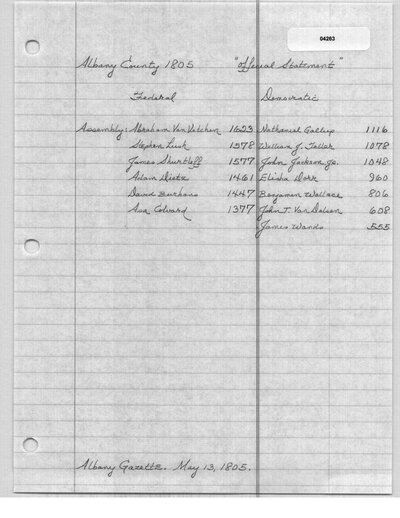 04263
Albany County 1805 "Official Statement"
Federal Democratic
Assembly: Abraham Van Vechten 1623 Nathaniel Gallup 1116
Stephen Lush 1578 William J. 1078
James Shurtleff 1577 John Jackson Jr. 1048
Adam Dietz 1461 Elisha Dorr 960
David Burhans 1447 Benjamin Wallace 806
Asa Colvard 1377 John T. Van Dalsen 608
James Wands 555
Albany Gazette. May 13, 1805.